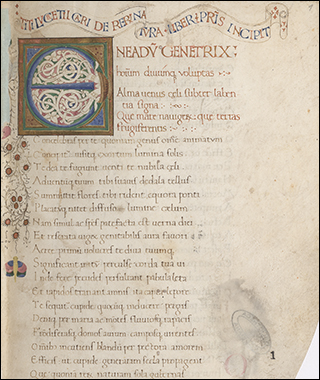 T·LVCRETII CARI DE RERV NA
TVRA·LIBER·PRIS INCIPIT
ENEADVM GENETRIX
hoium diuumq voluptas
Alma uenus celi subter laben
tia signa
Que mare nauigerum que terras
frugiferentis
Concelebras per te quoniam genus omne animantum
Concipit uisitq exortum lumina solis
Te dea te fugiunt uenti te nubila celi
Aduentuq tuum tibi suaues dedala tellus
Summittit flores tibi rident equora ponti
Placatuq nitet diffuso lumine celum
Nam simul ac species patefacta est uerna diei
Et reserata uiget genitabilis aura fauoni
Aerie primum uolucres te diua tuumq
Significant initum perculse corda tua ui
Inde fere pecudes persultant pabula leta
Et rapidos tranant amnis ita capta lepore
Te sequitur cupide quocunq inducere pergis
Deniq per maria ac montes fluuiosq rapaces
Frondiferasq domos auium camposq uirentes
Omnibus incutiens blandum per pectora amorem
Efficis ut cupide generatim secla propagent
Que quoniam rerum naturam sola gubernas
1